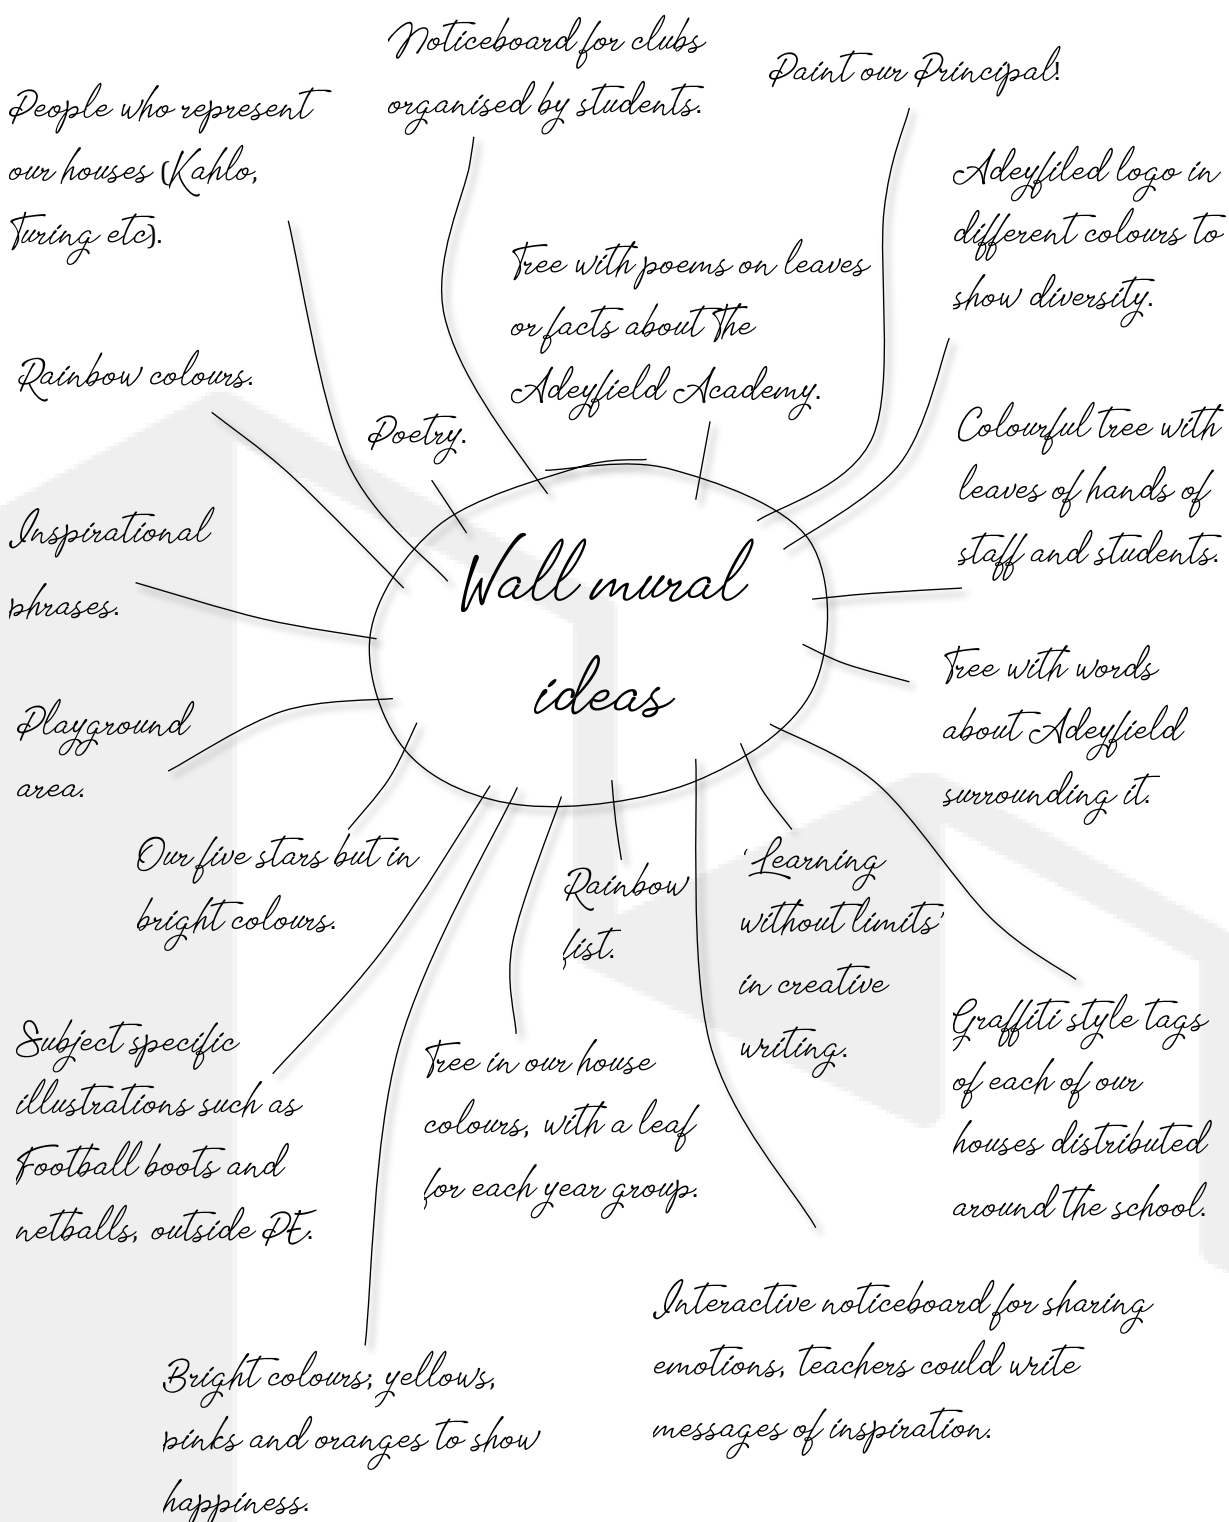 Noticeboard for clubs
organised by students.
Paint our Principal!
People who represent
our houses (Kahlo,
Turing etc).
Adeyfiled logo in
different colours to
show diversity.
Tree with poems on leaves
or facts about The
Adeyfield Academy.
Rainbow colours.
Poetry.
Colourful tree with
leaves of hands of
staff and students.
Inspirational
phrases.
Wall mural
ideas
Tree with words
about Adeyfield
surrounding it.
Playground
area.
Our five stars but in
bright colours.
Rainbow
list.
'Learning
without limits'
in creative
writing.
Graffiti style tags
of each of our
houses distributed
around the school.
Subject specific
illustrations such as
Football boots and
netballs, outside PE.
Tree in our house
colours, with a leaf
for each year group.
Interactive noticeboard for sharing
emotions, teachers could write
messages of inspiration.
Bright colours; yellows,
pinks and oranges to show
happiness.